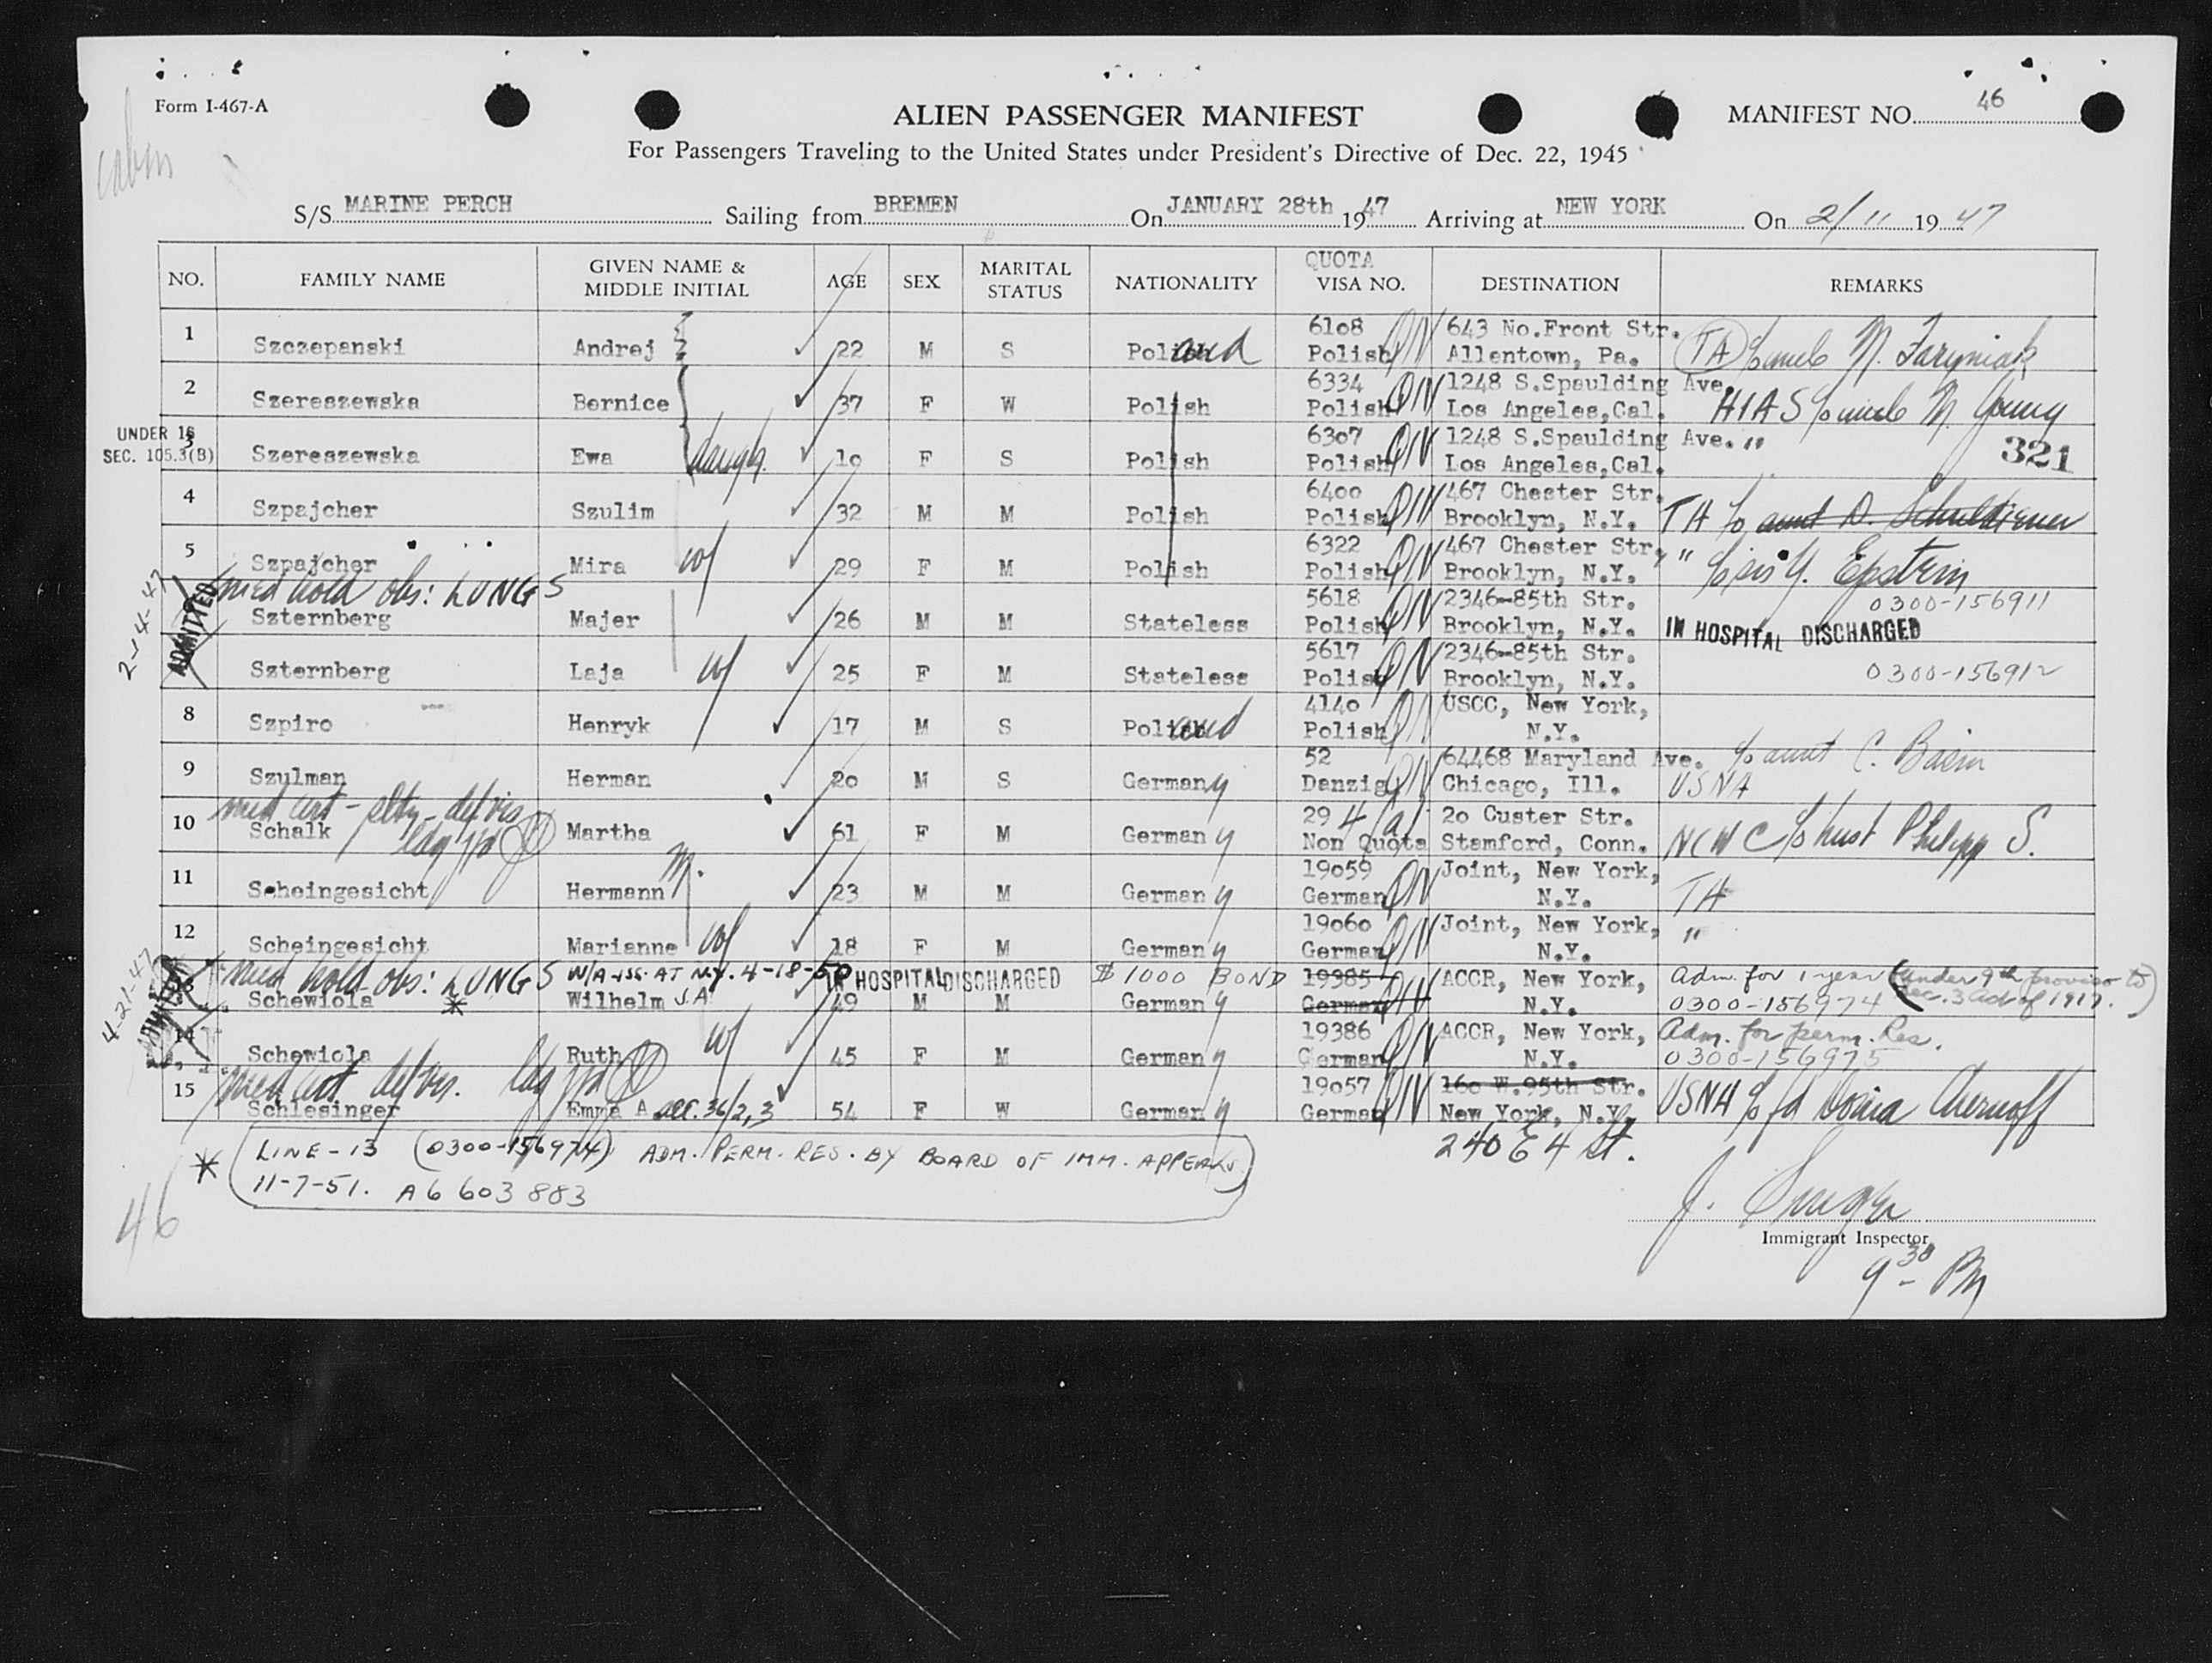 Form I-467-A
cabin
ALIEN PASSENGER MANIFEST
MANIFEST NO. 46
For Passengers Traveling to the United States under President's Directive of Dec. 22, 1945
S/S MARINE PERCH Sailing from BREMEN On JANUARY 28th 1947 Arriving at NEW YORK On 2/11 1947
NO. FAMILY NAME GIVEN NAME & MIDDLE INITIAL AGE SEX MARITAL STATUS NATIONALITY QUOTA VISA NO. DESTINATION REMARKS
1 Szczepanski Andrej 22 M S Poland 6108 Polish QIV 643 No.Front Str. Allentown, Pa. TA c/o uncle M. Faryniak
2 Szereszewska Bernice 37 F W Polish 6334 Polish QIV 1248 S.Spaulding Ave. Los Angeles,Cal. HIAS c/o uncle M. Young
UNDER 16 SEC. 105.3(B)
3 Szereszewska Ewa daugh. 10 F S Polish 6307 Polish QIV 1248 S.Spaulding Ave. Los Angeles,Cal. "
321
4 Szpajcher Szulim 32 M M Polish 6400 Polish QIV 467 Chester Str. Brooklyn, N.Y. TA c/o aunt D.
5 Szpajcher Mira wf 29 F M Polish 6322 Polish QIV 467 Chester Str. Brooklyn, N.Y. " c/o sis Y. Epstein
2-14-47 ADMITTED
med hold obs: LUNGS
Szternberg Majer 26 M M Stateless 5618 Polish QIV 2346-85th Str. Brooklyn, N.Y. 0300-156911
IN HOSPITAL DISCHARGED
Szternberg Laja wf 25 F M Stateless 5617 Polish QIV 2346-85th Str. Brooklyn, N.Y. 0300-156912
8 Szpiro Henryk 17 M S Poland 4140 Polish QIV USCC, New York, N.Y.
9 Szulman Herman 20 M S Germany 52 Danzig QIV 64468 Maryland Ave. Chicago, Ill. c/o aunt C. USNA
med cert - def vis
10 Schalk Martha 61 F M Germany 29 4(a) Non Quota 20 Custer Str. Stamford, Conn. NCWC c/o husb Philipp S.
11 Scheingesicht Hermann M. 23 M M Germany 19059 German QIV Joint, New York, N.Y. TA
12 Scheingesicht Marianne wf 18 F M Germany 19060 German QIV Joint, New York, N.Y. "
4-21-47 ADMITTED
med hold obs: LUNGS W/A iss. AT N.Y. 4-18-50 IN HOSPITAL DISCHARGED $1000 BOND
13 Schewiola * Wilhelm J.A. 49 M M Germany 19385 German QIV ACCR, New York, N.Y. adm. for 1 year (under 9th proviso to Sec. 3 act of 1917.) 0300-156974
14 Schewiola Ruth wf 45 F M Germany 19386 German QIV ACCR, New York, N.Y. Adm. for perm. Res. 0300-156975
med cert def vis.
15 Schlesinger Emma A acc. 36/2,3 54 F W Germany 19057 German QIV 160 W.95th Str. New York, N.Y. USNA c/o fd
240 E 4 St.
* LINE-13 (0300-156974) ADM. PERM. RES. BY BOARD OF IMM. APPEALS
11-7-51. A6 603 883
46
Immigrant Inspector
9 30 PM